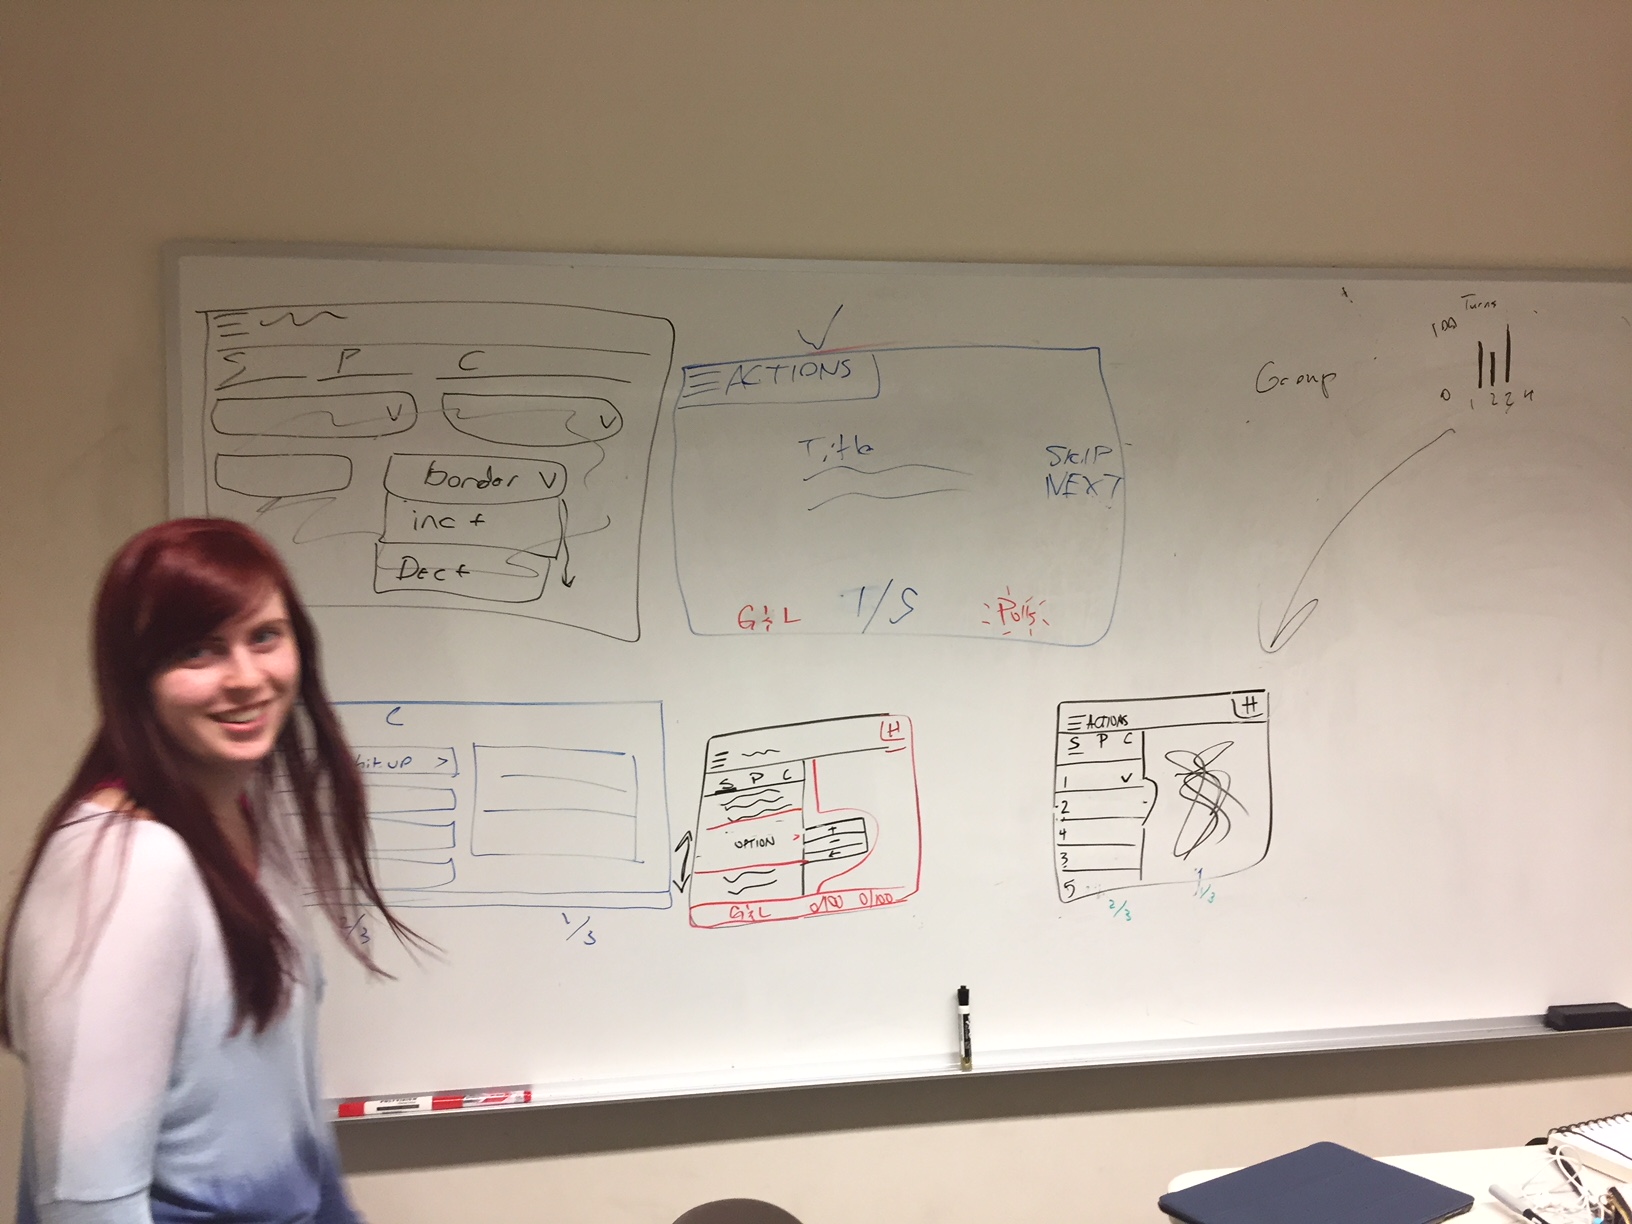 S P C
V V
border V
inc +
Dec +
ACTIONS
Title
SKIP
NEXT
G&L T/S Polls
Group
Turns
100
0
1 2 3 4
C
UP >
2/3 1/3
H
S P C
OPTION >
+
-
←
G&L 0/100 0/100
ACTIONS H
S P C
1 V
2
4
3
5
2/3 1/3